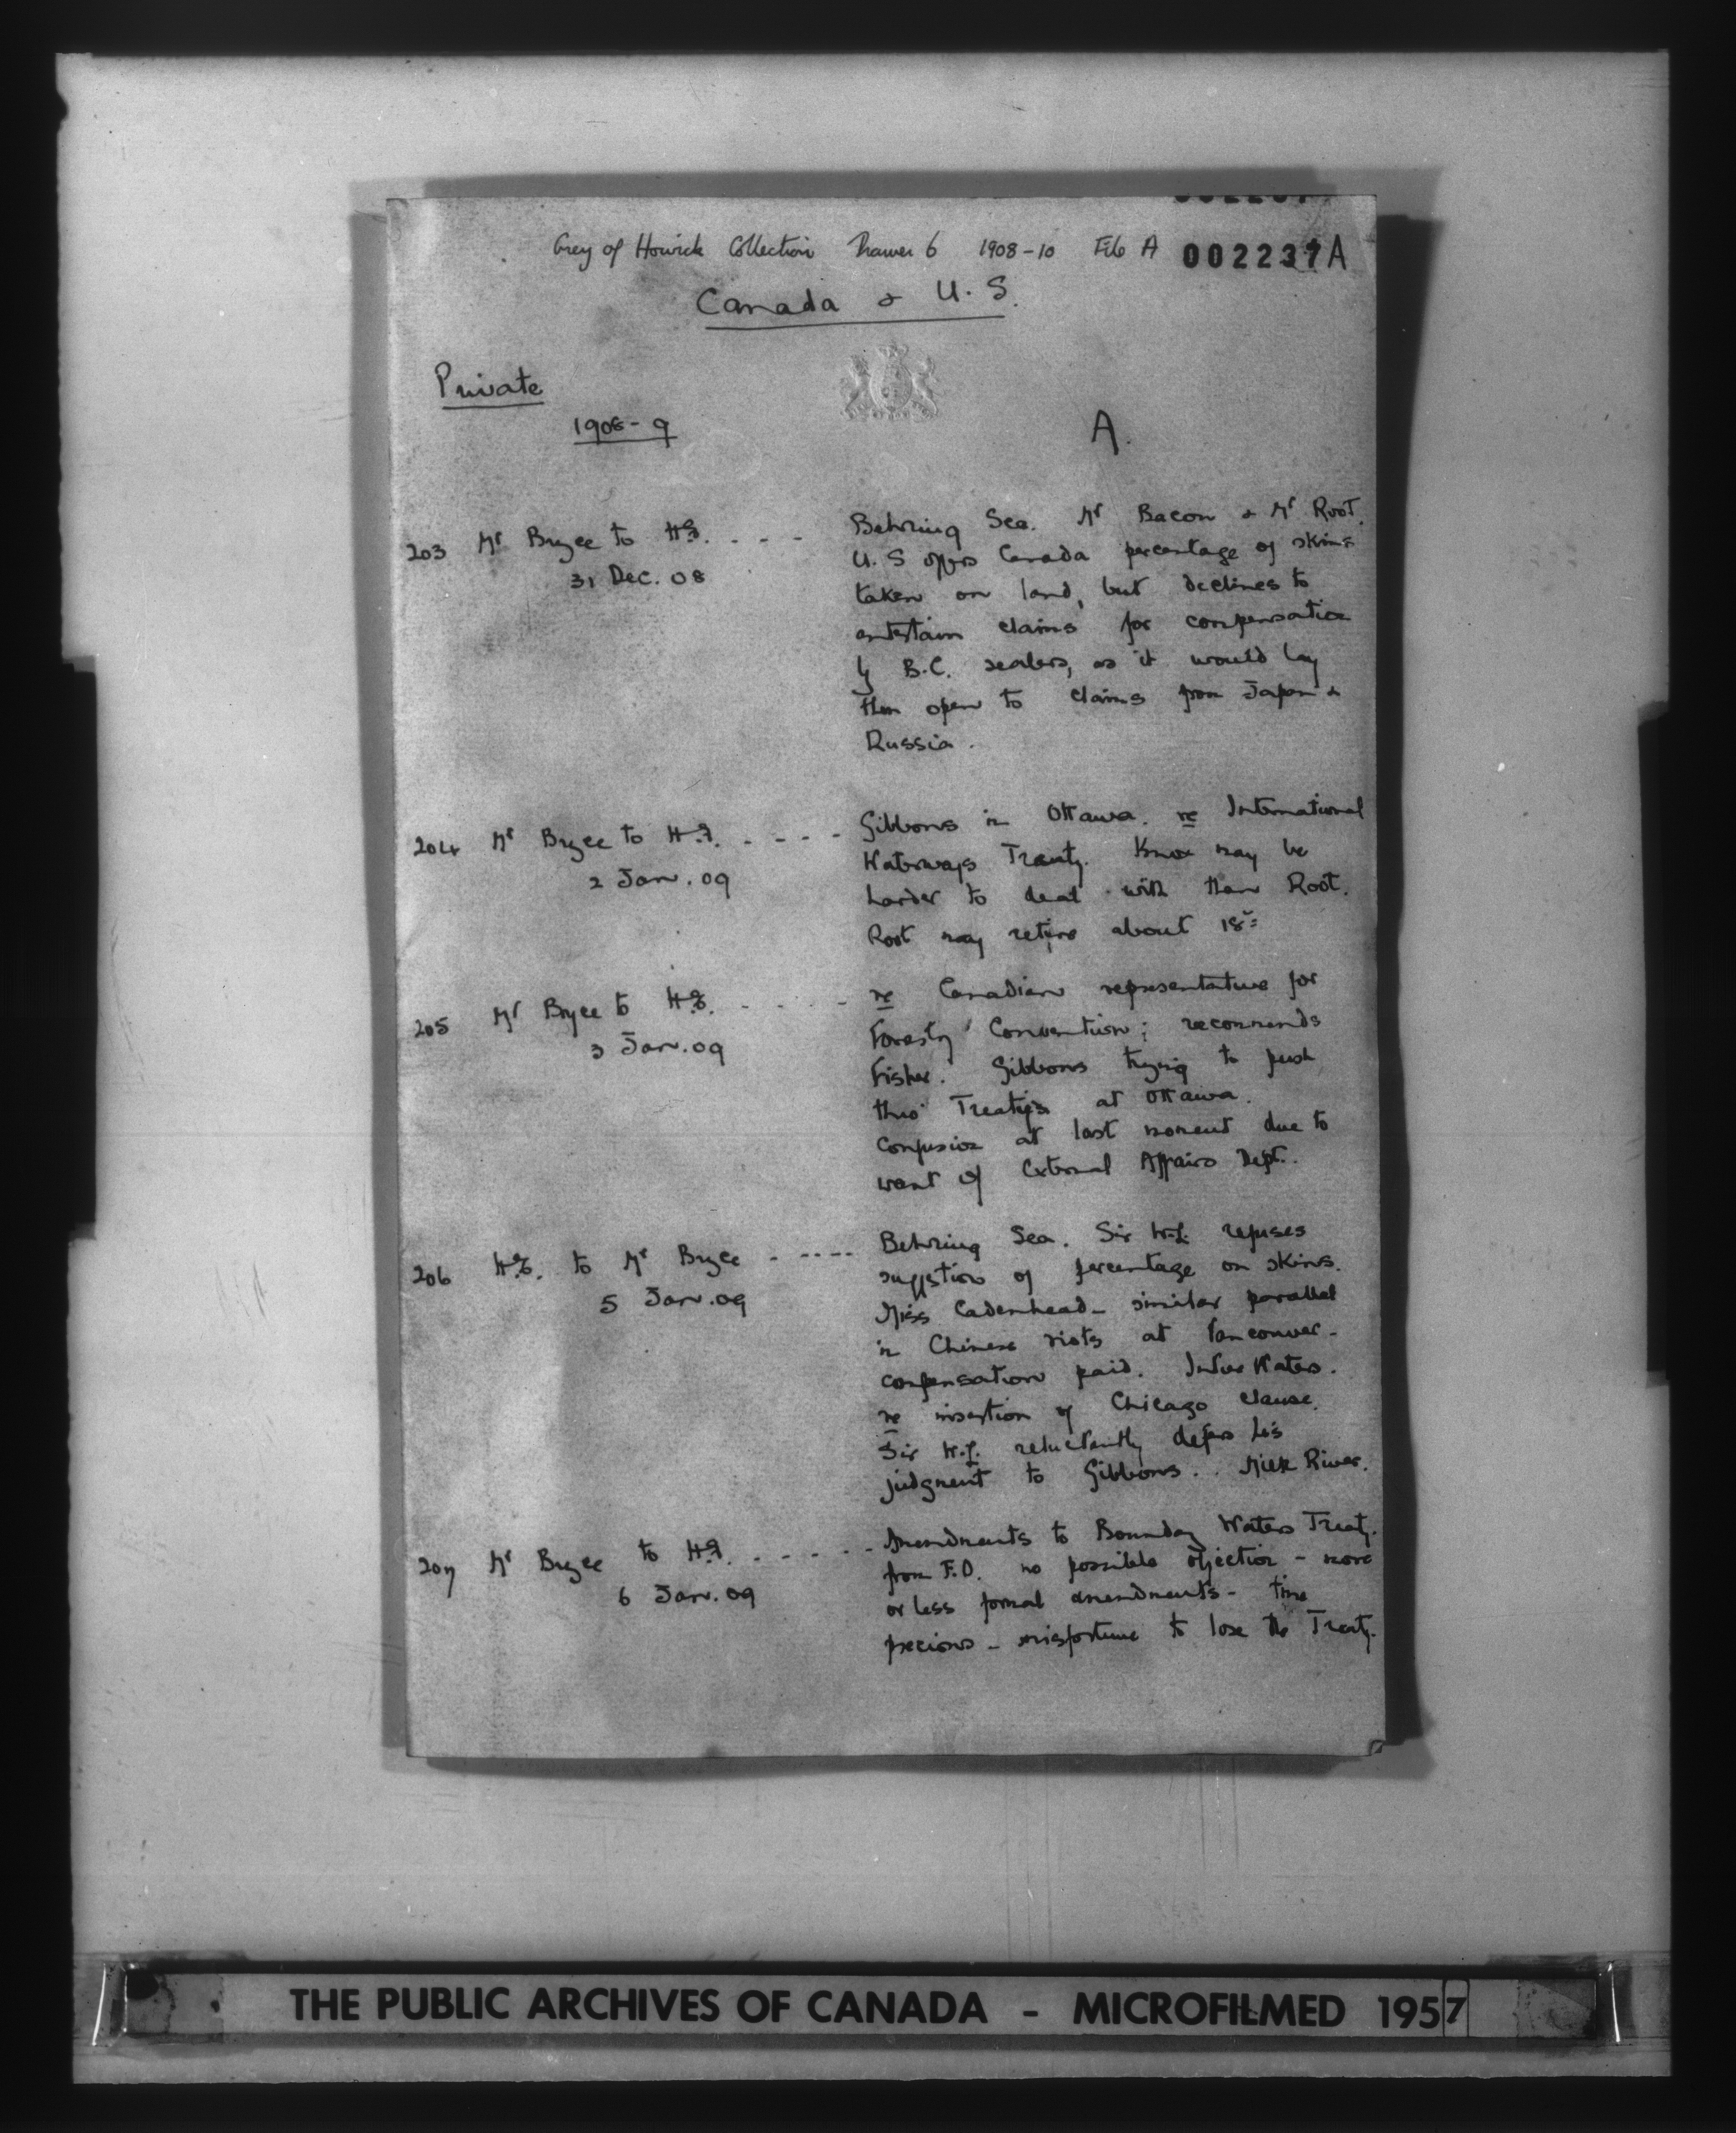 Grey of Howick Collection Drawer 6 1908-10 File A 002237A
Canada & U.S.
Private
1908-9
A.
203 Mr Bryce to H.E. - - - -
31 Dec. 08
Behring Sea. Mr Bacon & Mr Root.
U.S offers Canada percentage of skins
taken on land, but declines to
entertain claims for compensation
by B.C. sealers, as it would lay
them open to claims from Japan &
Russia.
204 Mr Bryce to H.E. - - - -
2 Jan. 09
Gibbons in Ottawa. re International
Waterways Treaty. Knox may be
harder to deal with than Root.
Root may retire about 18th
205 Mr Bryce to H.E. - - - - -
3 Jan. 09
re Canadian representative for
Forestry Convention; recommends
Fisher. Gibbons trying to push
thro' Treaties at Ottawa.
Confusion at last moment due to
want of External Affairs Dept.
206 H.E. to Mr Bryce - - - - -
5 Jan. 09
Behring Sea. Sir W.L. refuses
suggestion of percentage on skins.
Miss Cadenhead - similar parallel
in Chinese riots at Vancouver -
compensation paid. Inter Waters.
re insertion of Chicago clause.
Sir W.L. reluctantly defers his
judgment to Gibbons. Milk River.
207 Mr Bryce to H.E. - - - - - -
6 Jan. 09
Amendments to Boundary Waters Treaty.
from F.O. no possible objection - more
or less formal amendments - time
precious - misfortune to lose the Treaty.
THE PUBLIC ARCHIVES OF CANADA - MICROFILMED 1957